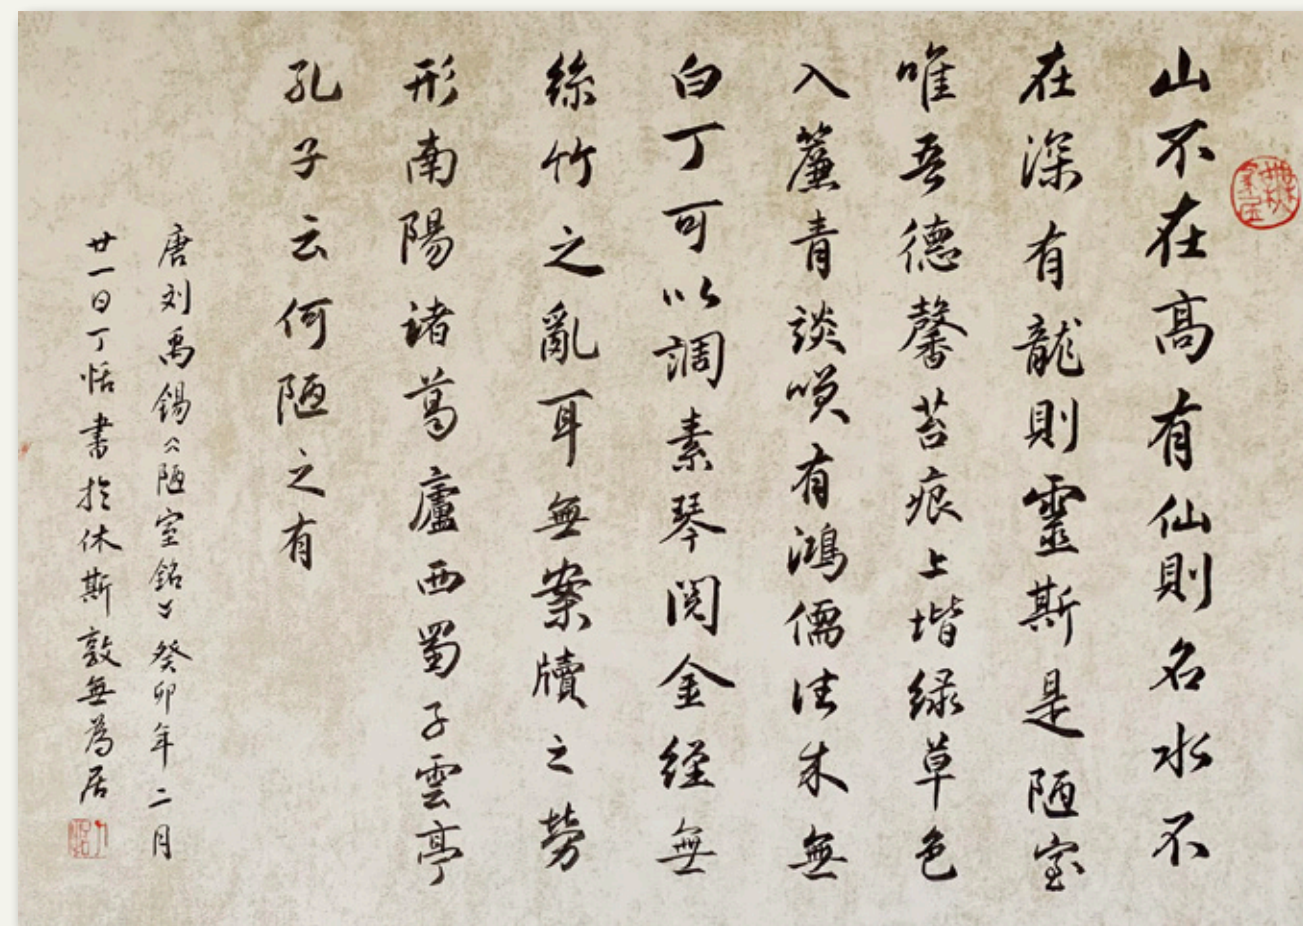 山不在高有仙則名水不
在深有龍則靈斯是陋室
唯吾德馨苔痕上堦緑草色
入簾青談咲有鴻儒往来無
白丁可以調素琴閱金經無
絲竹之亂耳無案牘之勞
形南陽諸葛廬西蜀子雲亭
孔子云何陋之有
唐刘禹錫《陋室銘》癸卯年二月
廿一日丁恬書於休斯敦無為居